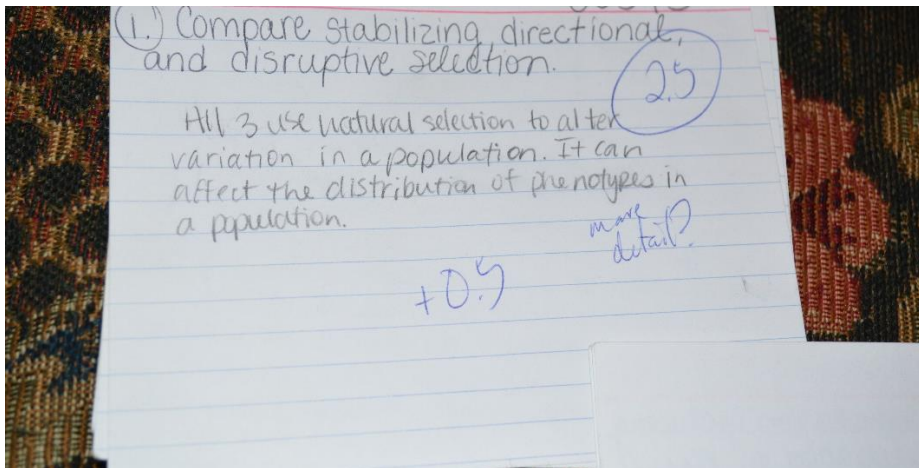 1. Compare stabilizing, directional,
and disruptive selection.
2.5
All 3 use natural selection to alter
variation in a population. It can
affect the distribution of phenotypes in
a population.
more
detail?
+0.5